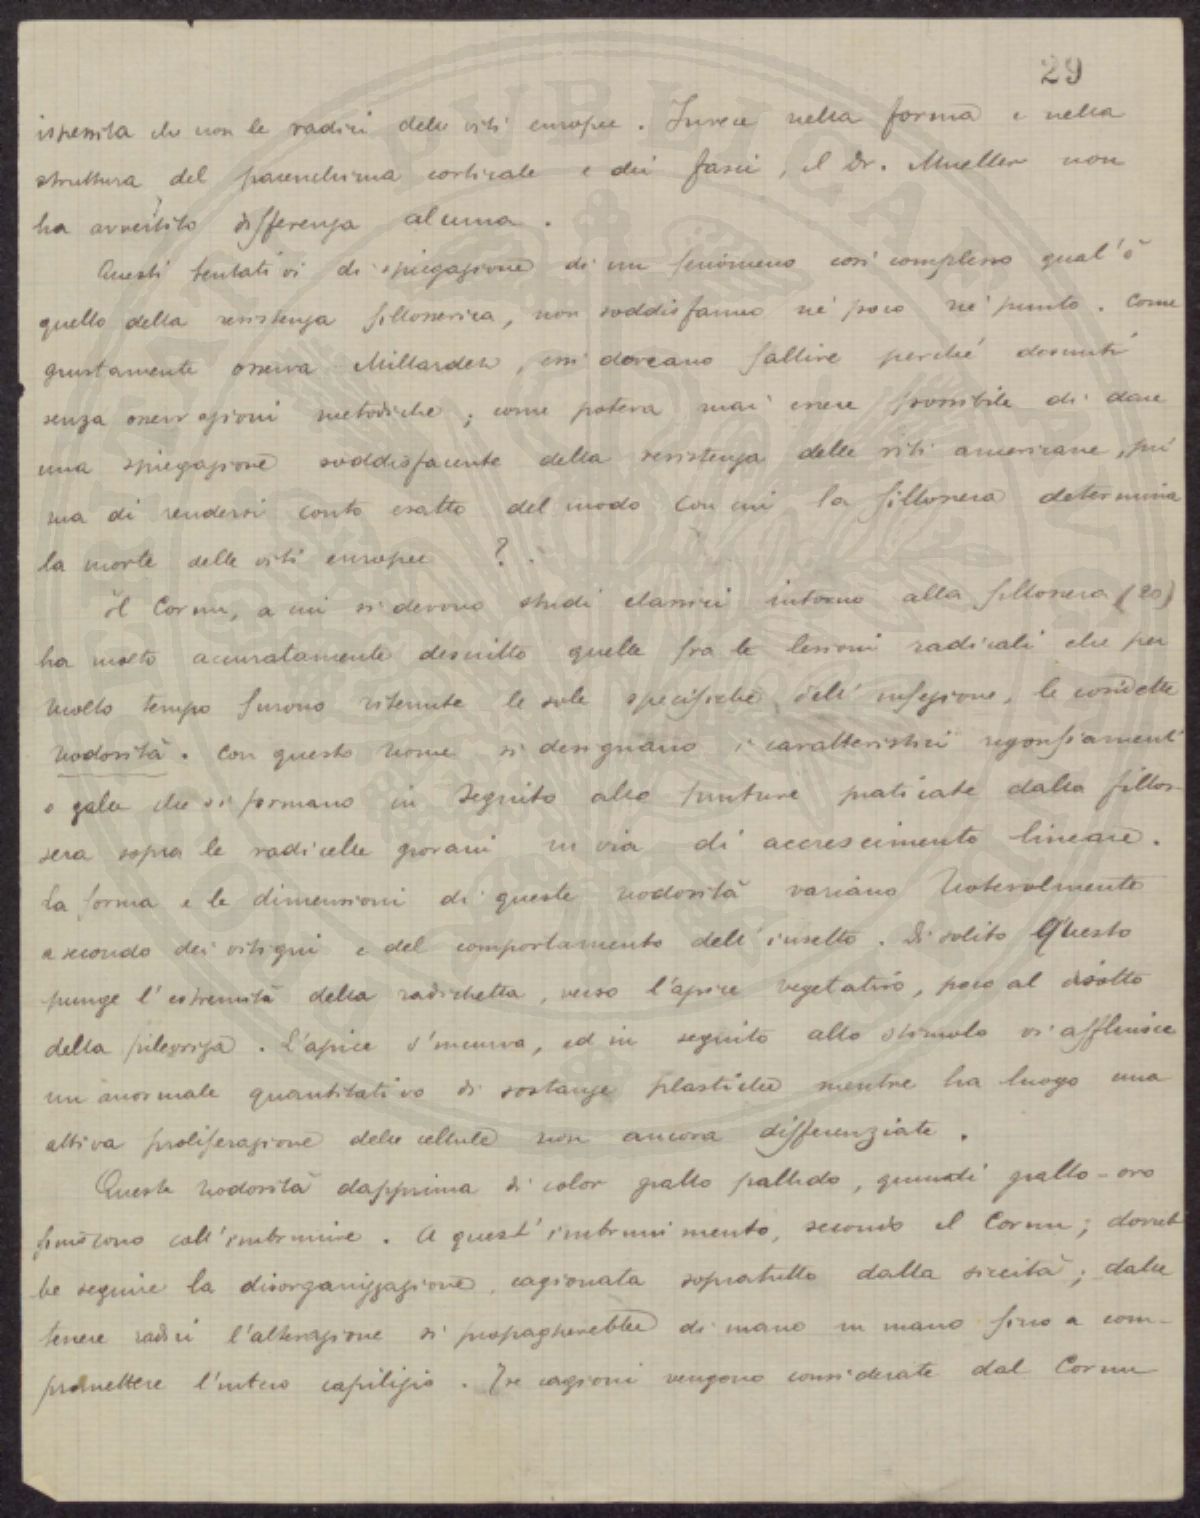 29
ispessita che non le radici delle viti europee. Invece nella forma e nella
struttura del parenchima corticale e dei fasci, il Dr. Mueller non
ha avvertito differenza alcuna.
Questi tentativi di spiegazione di un fenomeno così complesso qual'è
quello della resistenza fillosserica, non soddisfanno nè poco nè punto. Come
giustamente osserva Millardet, essi doveano fallire perchè
senza osservazioni metodiche; come poteva mai essere possibile di dare
una spiegazione soddisfacente della resistenza delle viti americane, pri
ma di rendersi conto esatto del modo con cui la fillossera determina
la morte delle viti europee ?
Il Cornu, a cui si devono studi classici intorno alla fillossera (20)
ha molto accuratamente descritto quelle fra le lesioni radicali che per
molto tempo furono ritenute le sole specifiche dell'infezione, le cosidette
nodosità. Con questo nome si designano i caratteristici rigonfiamenti
o galle che si formano in seguito alle punture praticate dalla fillos-
sera sopra le radicelle giovani in via di accrescimento lineare.
La forma e le dimensioni di queste nodosità variano notevolmente
a secondo dei vitigni e del comportamento dell'insetto. Di solito questo
punge l'estremità della radichetta, verso l'apice vegetativo, poco al disotto
della pileoriza. L'apice s'incurva, ed in seguito allo stimolo vi affluisce
un anormale quantitativo di sostanze plastiche mentre ha luogo una
attiva proliferazione delle cellule non ancora differenziate.
Queste nodosità dapprima di color giallo pallido, quindi giallo-oro
finiscono coll'imbrunire. A quest'imbrunimento, secondo il Cornu; dovreb
be seguire la disorganizzazione, cagionata sopratutto dalla siccità; dalle
tenere radici l'alterazione si propagherebbe di mano in mano fino a com-
promettere l'intero capilizio. Tre cagioni vengono considerate dal Cornu